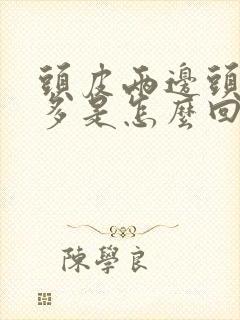 頭皮兩邊頭
多是怎麼回
陳學良